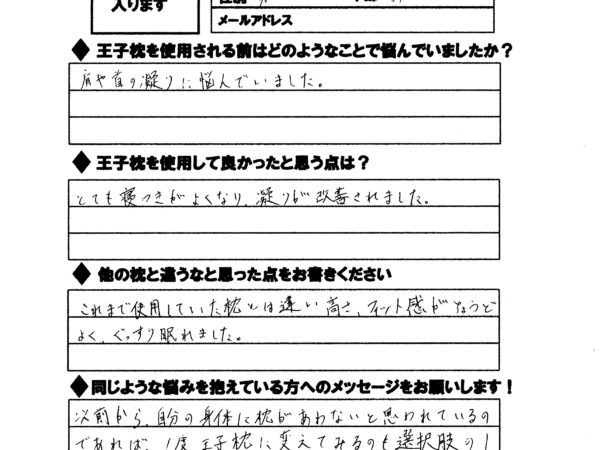 入ります
メールアドレス
◆ 王子枕を使用される前はどのようなことで悩んでいましたか？
肩や首の凝りに悩んでいました。
◆ 王子枕を使用して良かったと思う点は？
とても寝つきがよくなり、凝りが改善されました。
◆ 他の枕と違うなと思った点をお書きください
これまで使用していた枕とは違い高さ、フィット感がちょうど
よく、ぐっすり眠れました。
◆ 同じような悩みを抱えている方へのメッセージをお願いします！
以前から、自分の身体に枕があわないと思われているの
であれば、1度王子枕に変えてみるのも選択肢の1